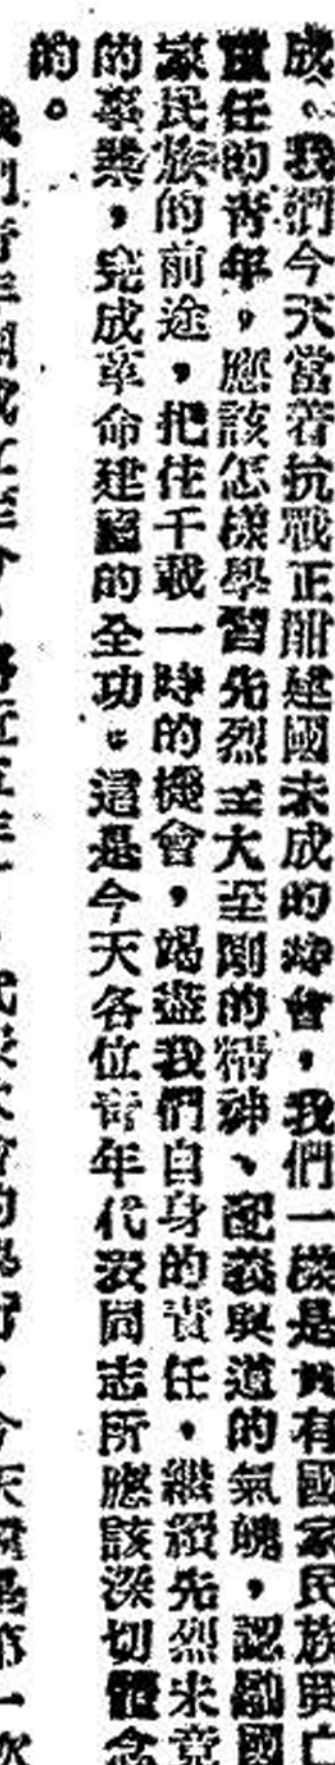 成。我們今天當着抗戰正酣建國未成的時會，我們一樣是負有國家民族興亡
重任的靑年，應該怎樣學習先烈至大至剛的精神、配義與道的氣魄，認勵國
家民族的前途，把住千載一時的機會，竭盡我們自身的責任，繼續先烈未竟
的事業，完成革命建國的全功。這是今天各位靑年代表同志所應該深切體念
的。